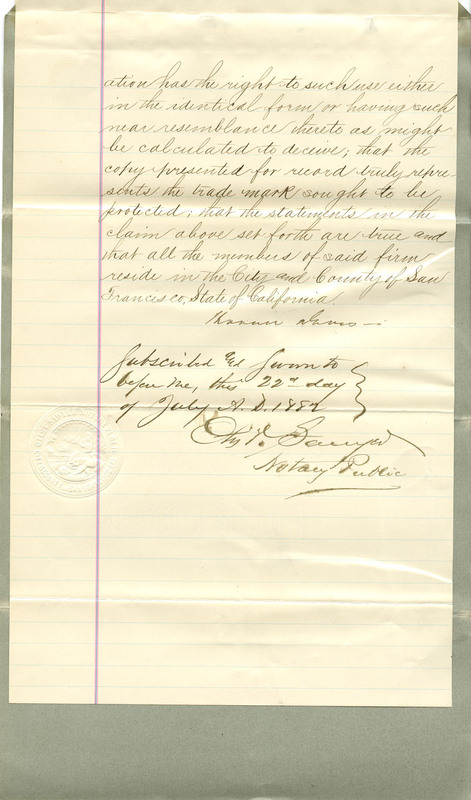 ation has the right to such use either
in the identical form or having such
near resemblance thereto as might
be calculated to deceive; that the
copy presented for record truly repre-
sents the trade mark sought to be
protected; that the statements in the
claim above set forth are true and
that all the members of said firm
reside in the City and County of San
Francisco, State of California.
Subscribed & Sworn to
before me, this 22nd day
of July A.D. 1882
Notary Public